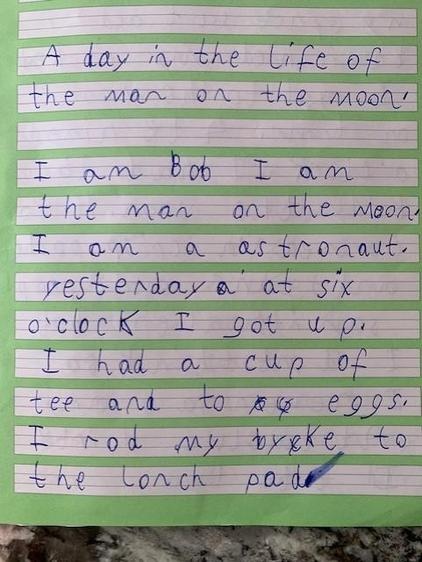 A day in the life of
the man on the moon.
I am Bob I am
the man on the Moon.
I am a astronaut.
yesterday a at six
o'clock I got up.
I had a cup of
tee and to eggs.
I rod my to
the lonch pad